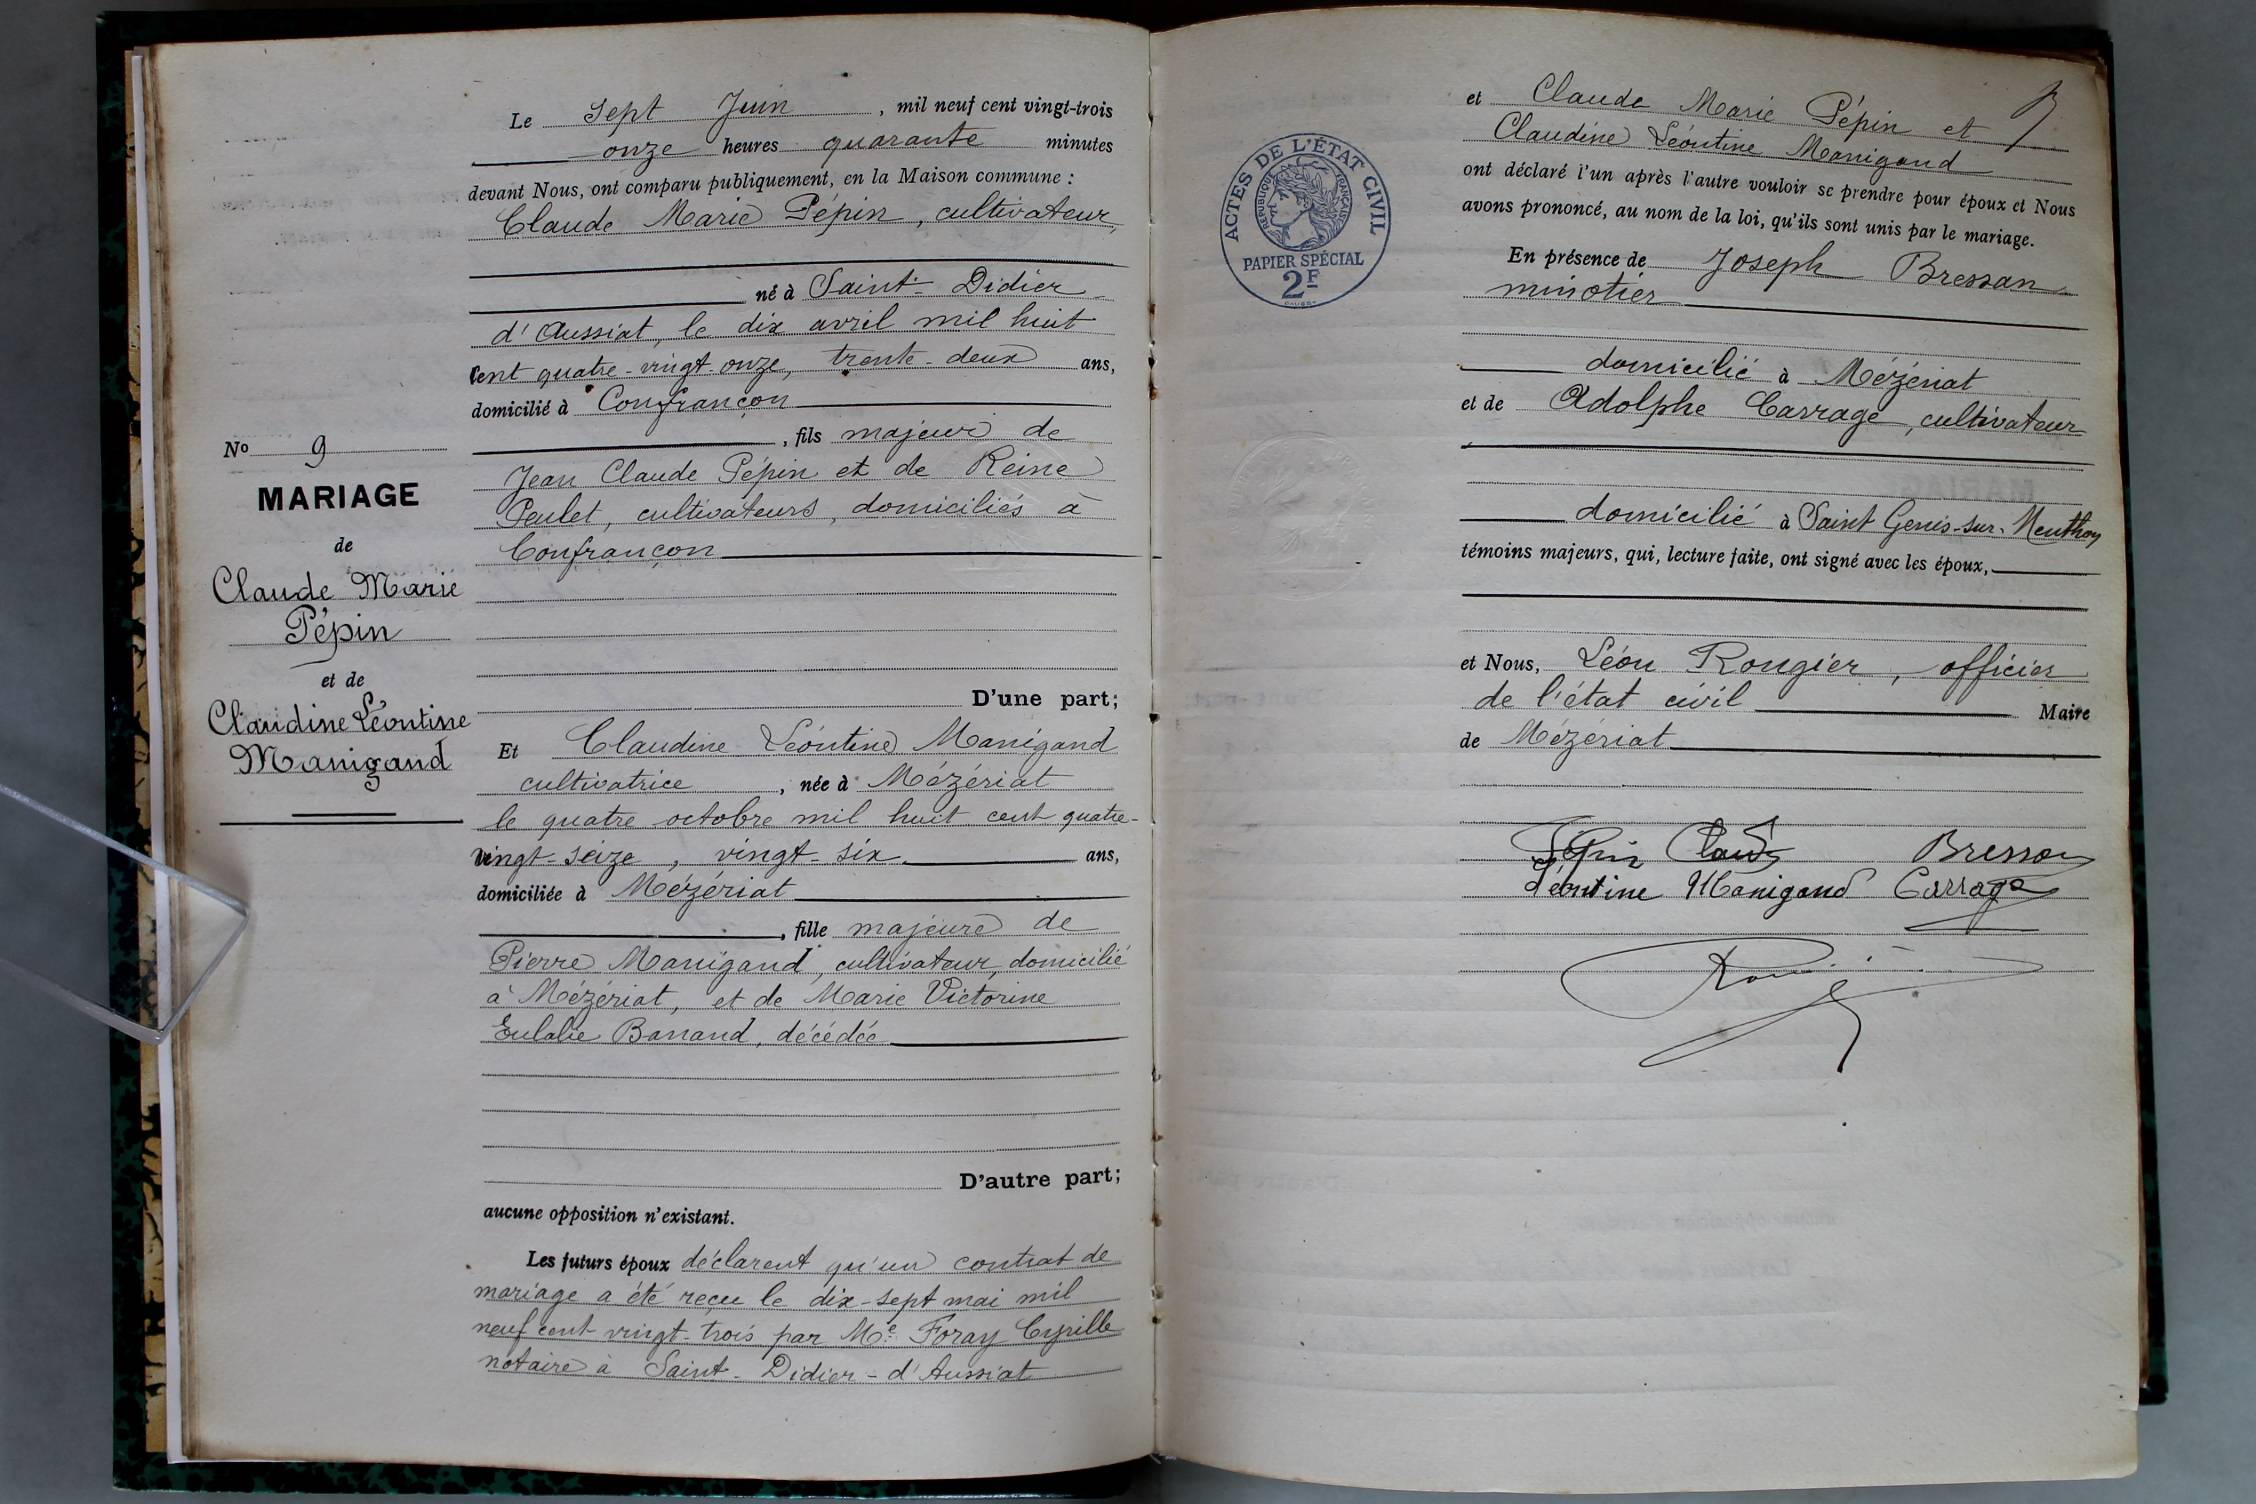 Le sept Juin, mil neuf cent vingt-trois
onze heures quarante minutes
devant Nous, ont comparu publiquement, en la Maison commune :
Claude Marie Pépin, cultivateur,
né à Saint-Didier
d'Aussiat, le dix avril mil huit
cent quatre-vingt-onze, trente-deux ans,
domicilié à Confrançon
, fils majeur de
Jean Claude Pépin et de Reine
Peulet, cultivateurs, domiciliés à
Confrançon
D'une part;
No 9
MARIAGE
de
Claude Marie
Pépin
et de
Claudine Léontine
Manigand
Et Claudine Léontine Manigand
cultivatrice, née à Mézériat
le quatre octobre mil huit cent quatre-
vingt-seize, vingt-six ans,
domiciliée à Mézériat
, fille majeure de
Pierre Manigand, cultivateur, domicilié
à Mézériat, et de Marie Victorine
Eulalie Banand, décédée
D'autre part;
aucune opposition n'existant.
Les futurs époux déclarent qu'un contrat de
mariage a été reçu le dix-sept mai mil
neuf cent vingt-trois par Me Foray Cyrille
notaire à Saint-Didier-d'Aussiat
ACTES DE L'ÉTAT CIVIL
RÉPUBLIQUE FRANÇAISE
PAPIER SPÉCIAL
2F
et Claude Marie Pépin et
Claudine Léontine Manigand
ont déclaré l'un après l'autre vouloir se prendre pour époux et Nous
avons prononcé, au nom de la loi, qu'ils sont unis par le mariage.
En présence de Joseph Bressan
minotier
domicilié à Mézériat
et de Adolphe Carrage, cultivateur
domicilié à Saint Genis-sur-Menthon
témoins majeurs, qui, lecture faite, ont signé avec les époux,
et Nous, Léon Rongier, officier
de l'état civil Maire
de Mézériat
Pépin Claude Bresson
Léontine Manigand Carrage